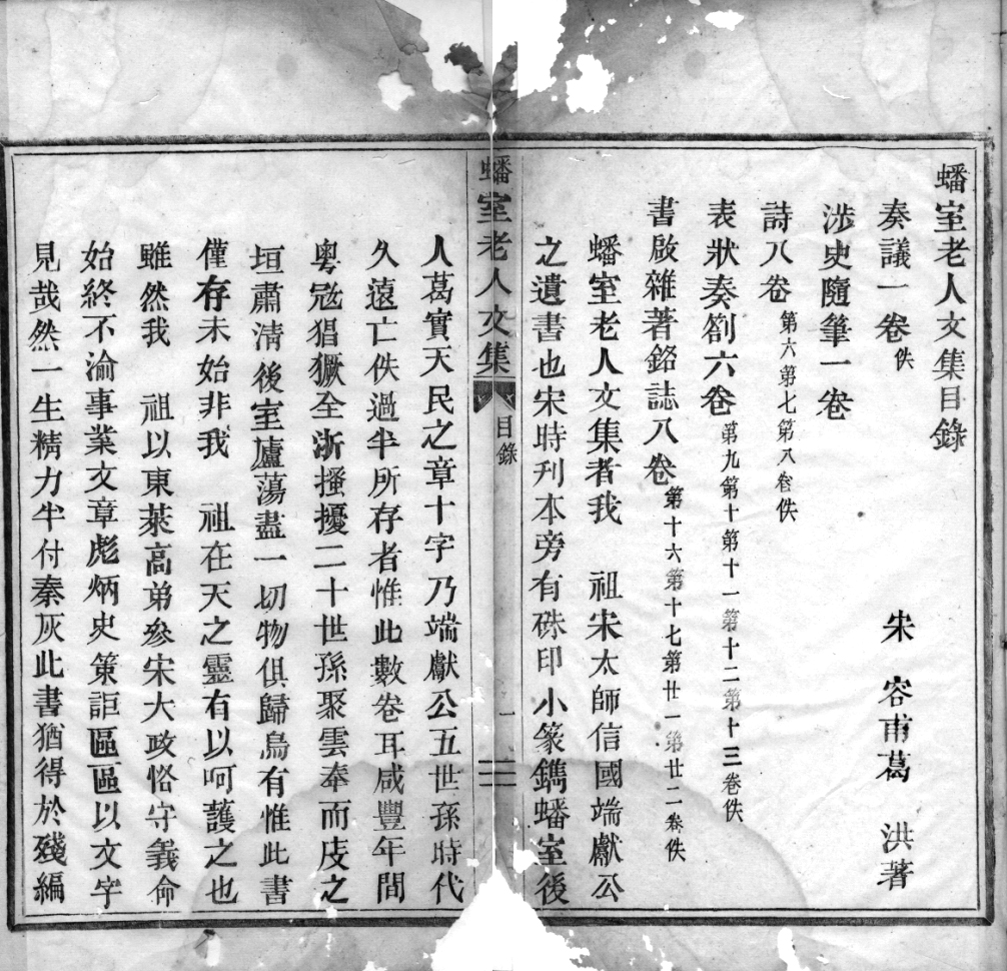 蟠室老人文集目錄
宋　容甫葛　洪著
奏議一卷佚
涉史隨筆一卷
詩八卷第六第七第八卷佚
表狀奏劄六卷第九第十第十一第十二第十三卷佚
書啟雜著銘誌八卷第十六第十七第廿一第廿二卷佚
蟠室老人文集者我　祖宋太師信國端獻公
之遺書也宋時刋本旁有硃印小篆鐫蟠室後
蟠室老人文集　目錄　一
人葛實天民之章十字乃端獻公五世孫時代
久遠亡佚過半所存者惟此數卷耳咸豐年間
粵寇猖獗全浙搔擾二十世孫聚雲奉而庋之
垣肅淸後室廬蕩盡一切物俱歸烏有惟此書
僅存未始非我　祖在天之靈有以呵護之也
雖然我　祖以東萊高弟參宋大政恪守義命
始終不渝事業文章彪炳史策詎區區以文字
見哉然一生精力半付秦灰此書猶得於殘編